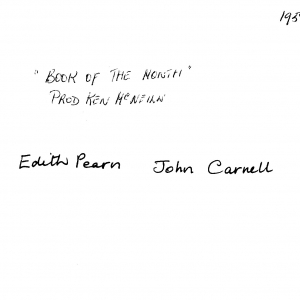 "BOOK OF THE MONTH"
PROD KEN McNEILL
Edith Pearn John Carnell